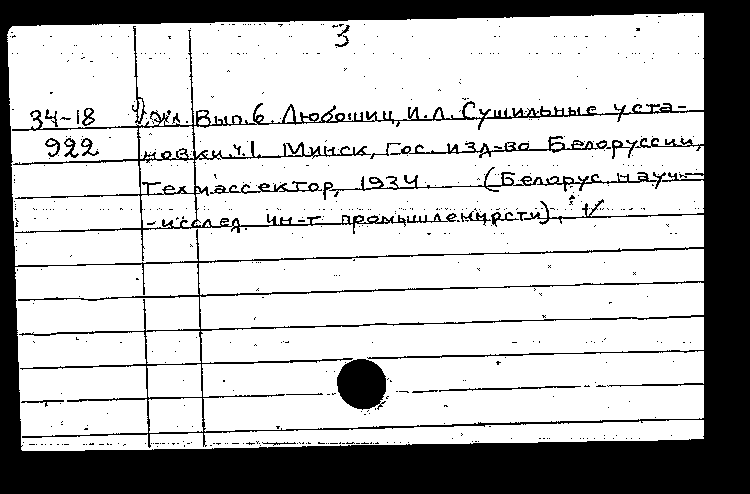 3
34-18 Вып.6. Любошиц, И.Л. Сушильные уста-
922 новки.ч.1. Минск, Гос. изд-во Белоруссии,
Техмассектор, 1934. (Белорус. науч.-
-исслед. ин-т промышленности).